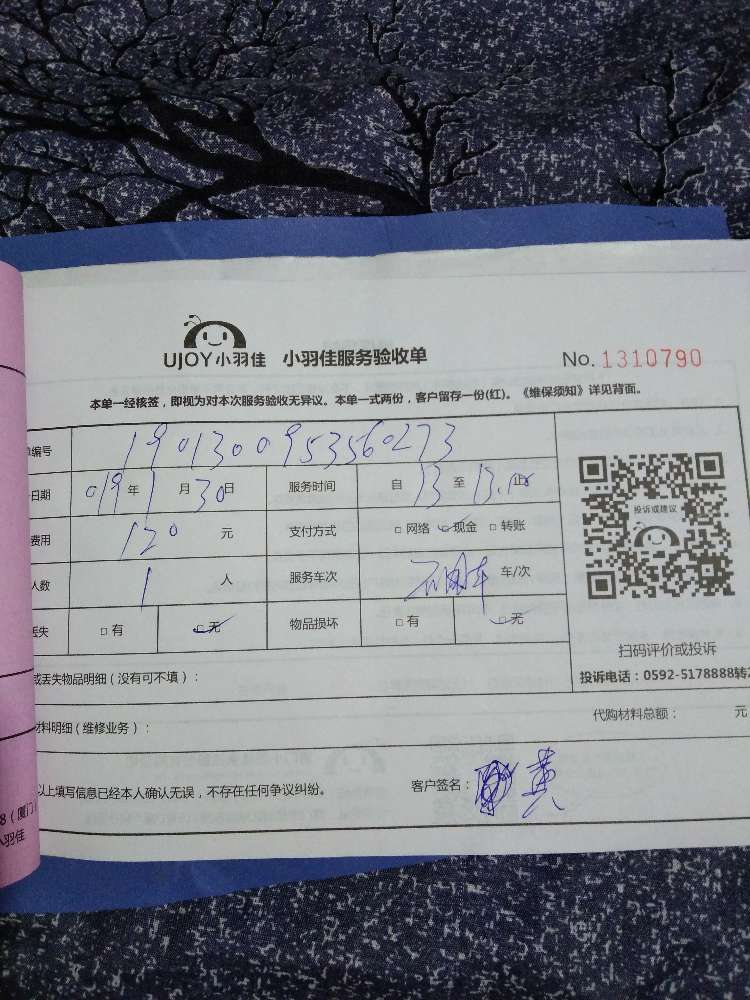 UJOY小羽佳 小羽佳服务验收单 No. 1310790
本单一经核签，即视为对本次服务验收无异议。本单一式两份，客户留存一份(红)。《维保须知》详见背面。
单编号 1901300953560273
日期 019年1月30日 服务时间 自13至13.10止
费用 120元 支付方式 □网络 ☑现金 □转账
人数 1人 服务车次 不用车 车/次
丢失 □有 ☑无 物品损坏 □有 ☑无
投诉或建议
扫码评价或投诉
投诉电话：0592-5178888转2
或丢失物品明细（没有可不填）：
代购材料总额： 元
材料明细（维修业务）：
以上填写信息已经本人确认无误，不存在任何争议纠纷。 客户签名： 黄
8（厦门
小羽佳